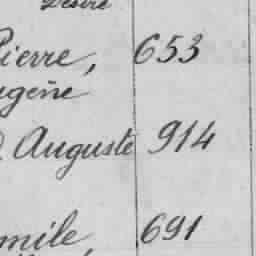 Désiré
Pierre, 653
ugène
Auguste 914
mile, 691